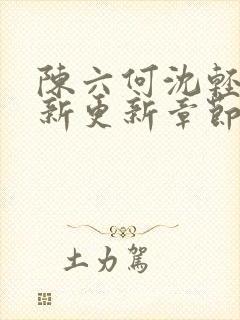 陳六何沈輕
新更新章節
土力駕